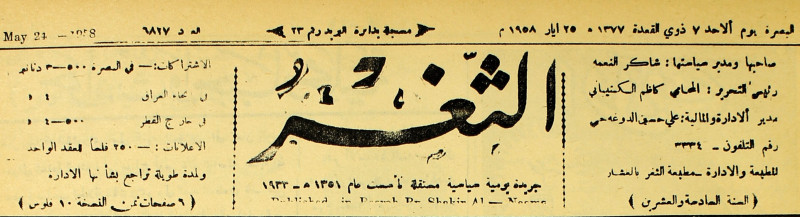 البصرة يوم الاحد ٧ ذوي القعدة ١٣٧٧ * ٢٥ ايار ١٩٥٨ م
مسجلة بدائرة البريد رقم ٢٣
العدد ٦٨٢٧
May 24 1958
صاحبها ومدير سياستها : شاكر النعمه
رئيس التحرير : المحامي كاظم الكشيباني
مدير الادارة والمالية : علي حسين الدوغه جي
رقم التلفون – ٣٣٣٤
للطبعة والادارة – مطبعة الثغر بالعشار
( السنة السادسة والعشرين )
الثغر
جريدة يومية سياسية مستقلة تأسست عام ١٣٥١ هـ – ١٩٣٣
Published in Basrah By Shakir Al – Neema
الاشتراكات : — في البصرة ٥٠٠–٣ دنانير
في انحاء العراق ٤ د
في خارج القطر ٥٠٠–٤ د
الاعلانات : — ٢٥٠ فلساً للعقد الواحد
ولمدة طويلة تراجع بشأنها الادارة
( ٦ صفحات ثمن النسخة ١٠ فلوس )